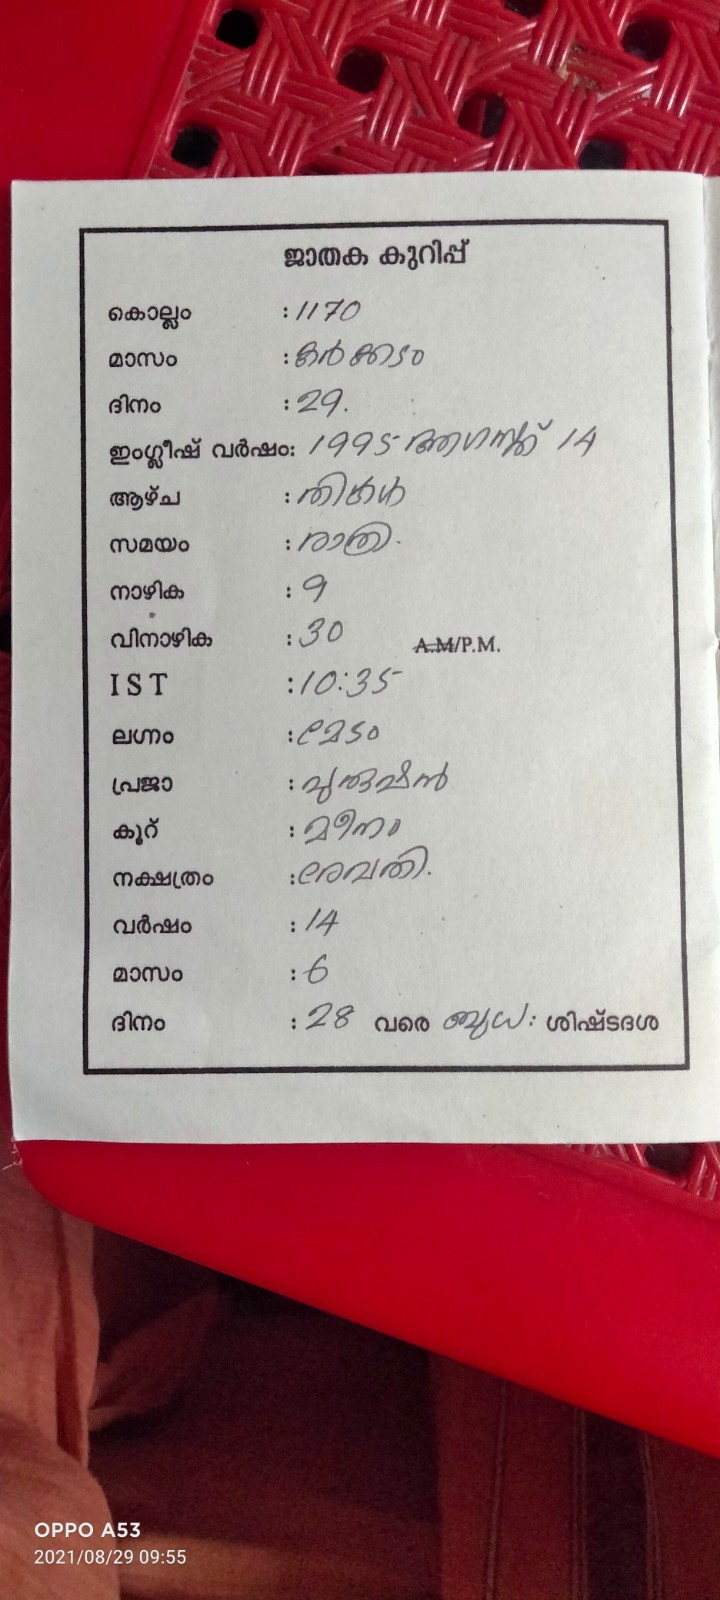 ജാതക കുറിപ്പ്
കൊല്ലം : 1170
മാസം : കർക്കടം
ദിനം : 29.
ഇംഗ്ലീഷ് വർഷം: 1995 ആഗസ്ത് 14
ആഴ്ച : തിങ്കൾ
സമയം : രാത്രി.
നാഴിക : 9
വിനാഴിക : 30 A.M/P.M.
I S T : 10:35
ലഗ്നം : മേടം
പ്രജാ : പുരുഷൻ
കൂറ് : മീനം
നക്ഷത്രം : രേവതി.
വർഷം : 14
മാസം : 6
ദിനം : 28 വരെ ബുധ: ശിഷ്ടദശ
OPPO A53
2021/08/29 09:55